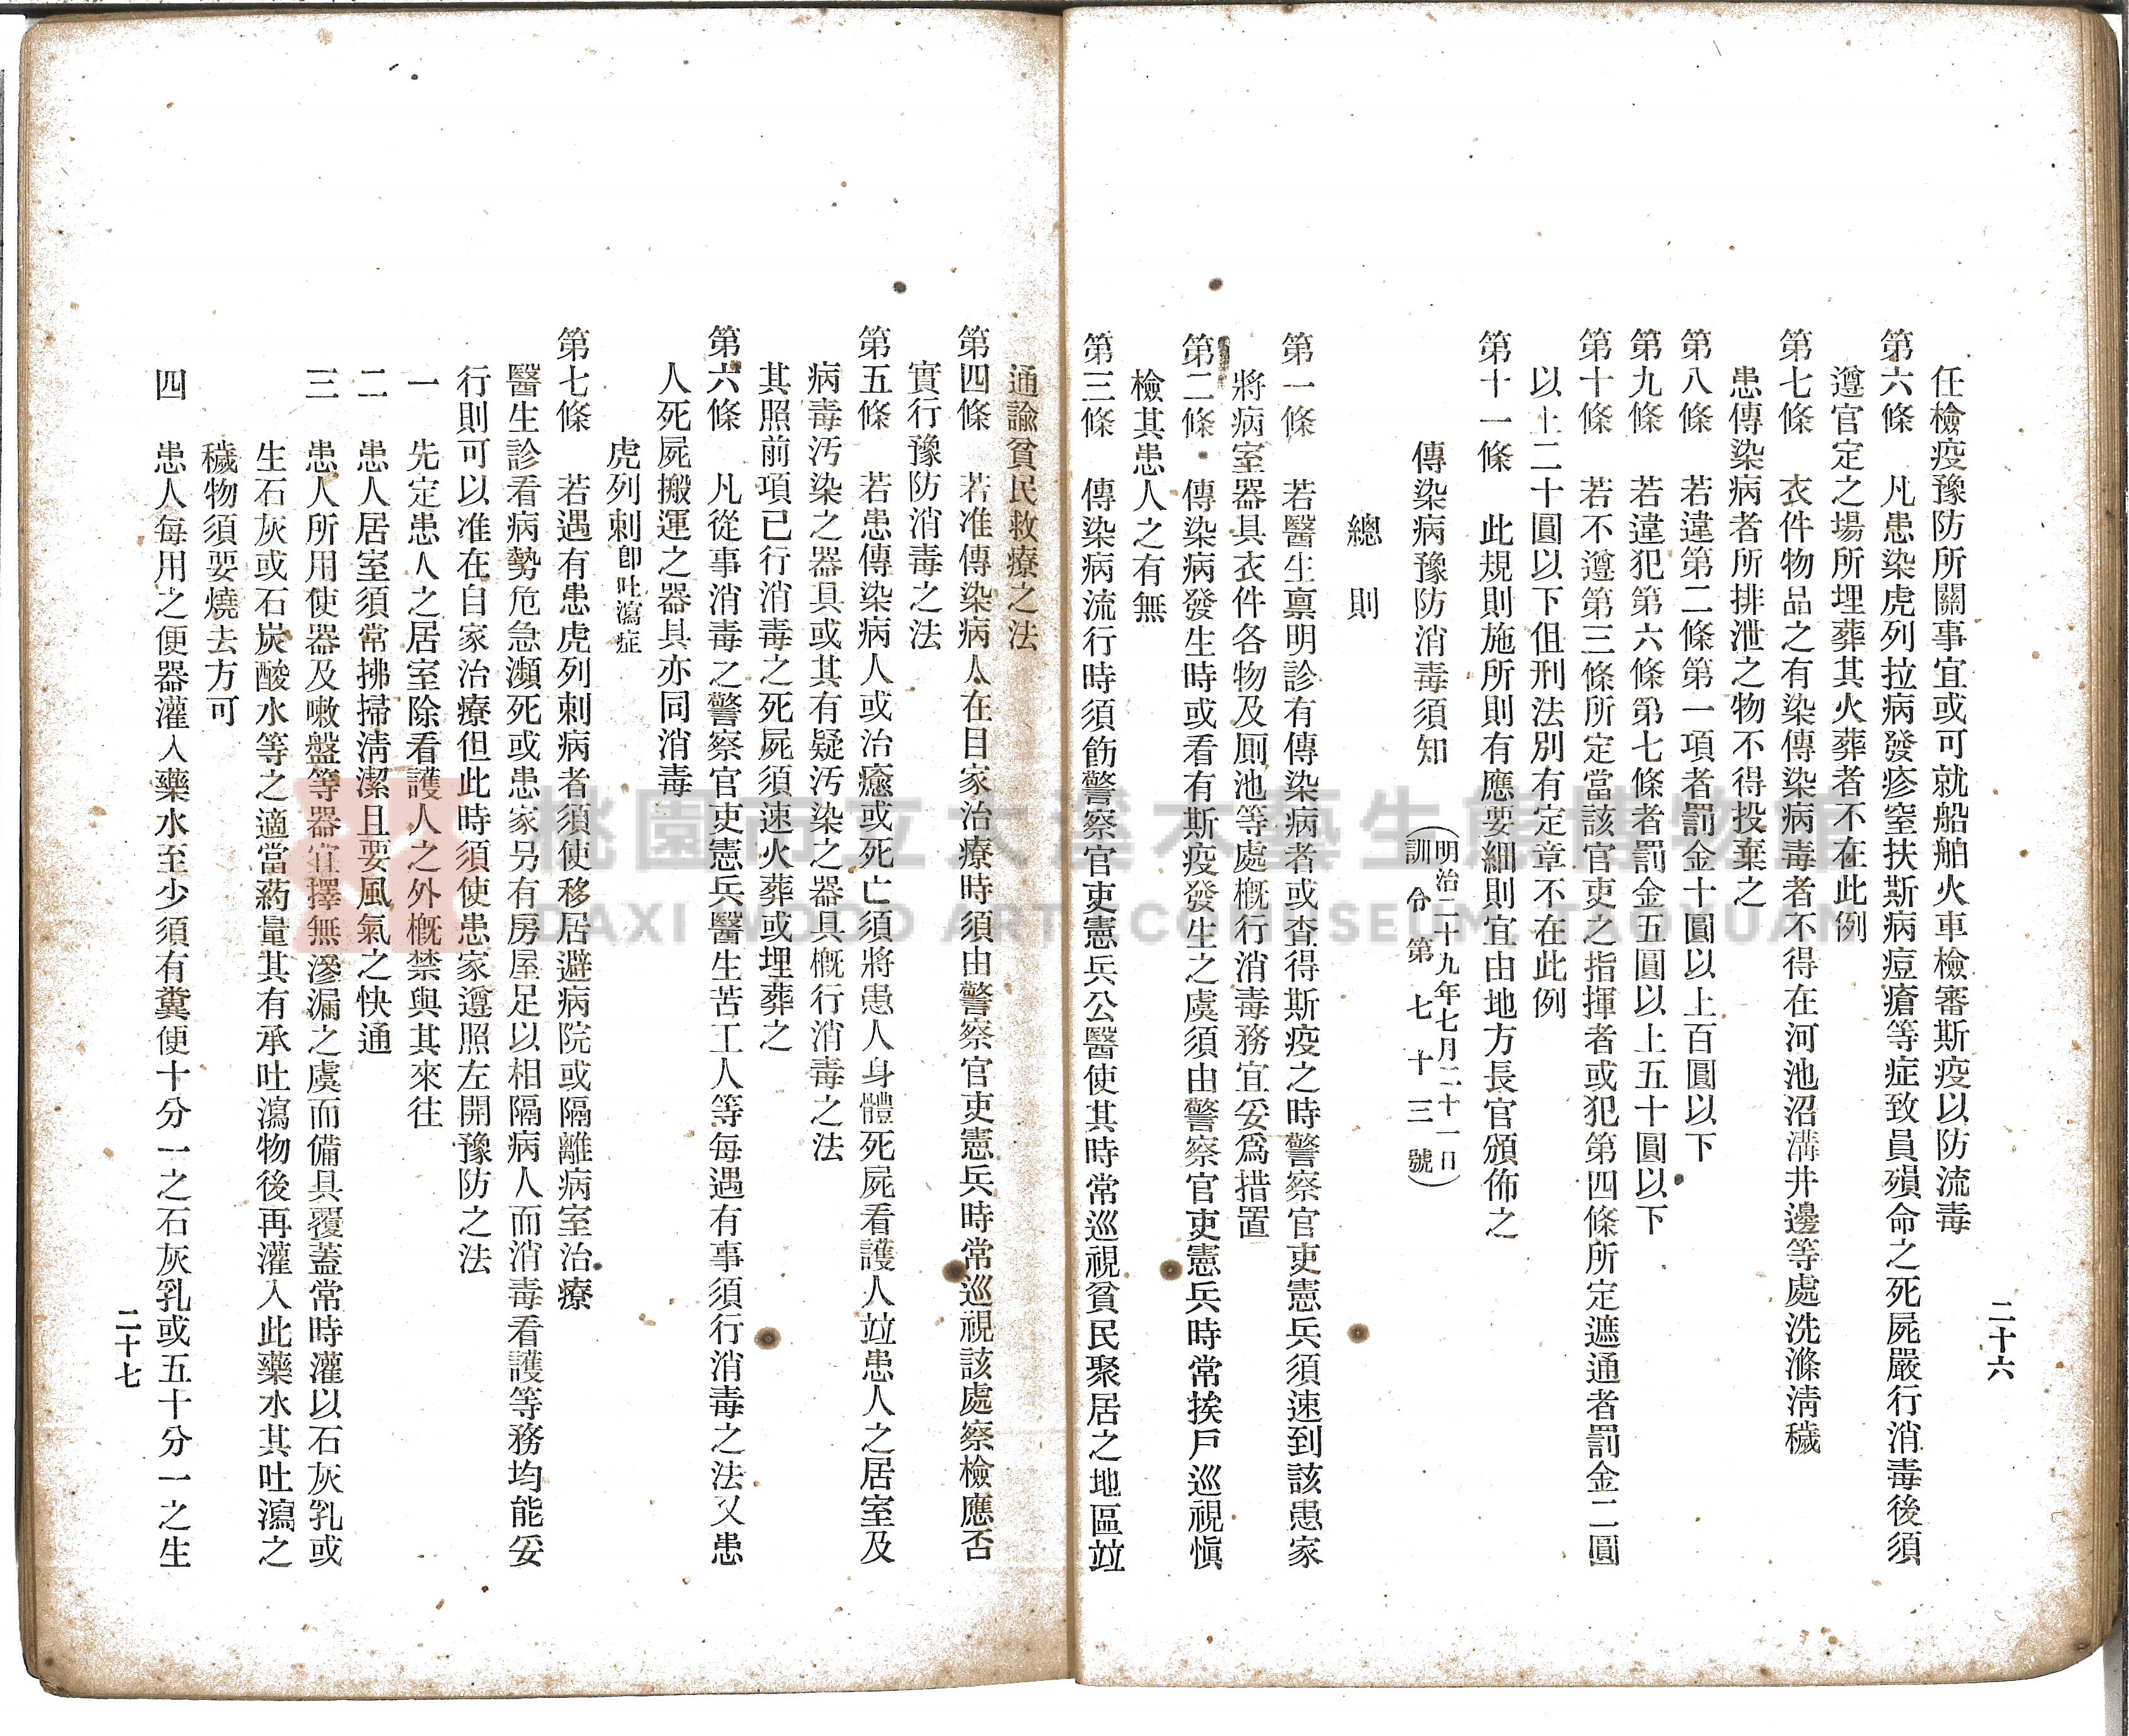 任檢疫豫防所關事宜或可就船舶火車檢審斯疫以防流毒
第六條　凡患染虎列拉病發疹窒扶斯病痘瘡等症致員殞命之死屍嚴行消毒後須
遵官定之場所埋葬其火葬者不在此例
第七條　衣件物品之有染傳染病毒者不得在河池沼溝井邊等處洗滌淸穢
患傳染病者所排泄之物不得投棄之
第八條　若違第二條第一項者罰金十圓以上百圓以下
第九條　若違犯第六條第七條者罰金五圓以上五十圓以下
第十條　若不遵第三條所定當該官吏之指揮者或犯第四條所定遮通者罰金二圓
以上二十圓以下但刑法別有定章不在此例
第十一條　此規則施所則有應要細則宜由地方長官頒佈之
傳染病豫防消毒須知（明治二十九年七月二十一日
訓令第七十三號）
總則
第一條　若醫生稟明診有傳染病者或查得斯疫之時警察官吏憲兵須速到該患家
將病室器具衣件各物及厠池等處概行消毒務宜妥爲措置
第二條　傳染病發生時或看有斯疫發生之虞須由警察官吏憲兵時常挨戶巡視愼
檢其患人之有無
第三條　傳染病流行時須飭警察官吏憲兵公醫使其時常巡視貧民聚居之地區竝
二十六
通諭貧民救療之法
第四條　若准傳染病人在目家治療時須由警察官吏憲兵時常巡視該處察檢應否
實行豫防消毒之法
第五條　若患傳染病人或治癒或死亡須將患人身體死屍看護人竝患人之居室及
病毒汚染之器具或其有疑汚染之器具概行消毒之法
其照前項已行消毒之死屍須速火葬或埋葬之
第六條　凡從事消毒之警察官吏憲兵醫生苦工人等每遇有事須行消毒之法又患
人死屍搬運之器具亦同消毒
虎列刺卽吐瀉症
第七條　若遇有患虎列刺病者須使移居避病院或隔離病室治療
醫生診看病勢危急瀕死或患家另有房屋足以相隔病人而消毒看護等務均能妥
行則可以准在自家治療但此時須使患家遵照左開豫防之法
一　先定患人之居室除看護人之外概禁與其來往
二　患人居室須常拂掃淸潔且要風氣之快通
三　患人所用使器及嗽盤等器宜擇無滲漏之虞而備具覆蓋常時灌以石灰乳或
生石灰或石炭酸水等之適當葯量其有承吐瀉物後再灌入此藥水其吐瀉之
穢物須要燒去方可
四　患人每用之便器灌入藥水至少須有糞便十分一之石灰乳或五十分一之生
二十七
桃園市立大溪木藝生態博物館
DAXI WOOD ART ECOMUSEUM, TAOYUAN